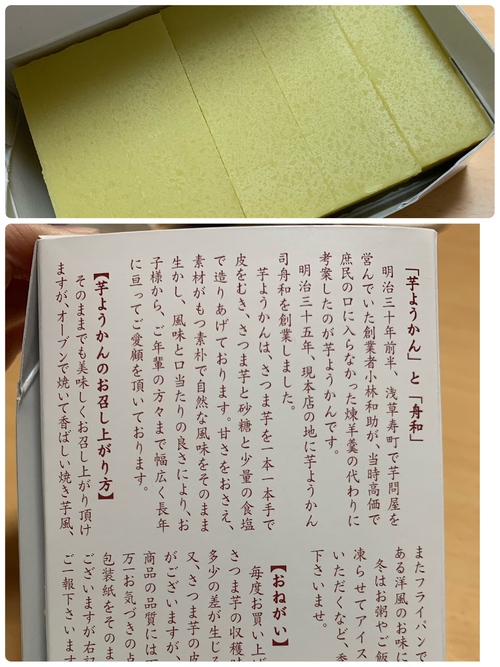 「芋ようかん」と「舟和」
明治三十年前半、浅草寿町で芋問屋を
営んでいた創業者小林和助が、当時高価で
庶民の口に入らなかった煉羊羹の代わりに
考案したのが芋ようかんです。
明治三十五年、現本店の地に芋ようかん
司舟和を創業しました。
芋ようかんは、さつま芋を一本一本手で
皮をむき、さつま芋と砂糖と少量の食塩
で造りあげております。甘さをおさえ、
素材がもつ素朴で自然な風味をそのまま
生かし、風味と口当たりの良さにより、お
子様から、ご年輩の方々まで幅広く長年
に亘ってご愛顧を頂いております。
【芋ようかんのお召し上がり方】
そのままでも美味しくお召し上がり頂け
ますが、オーブンで焼いて香ばしい焼き芋風、
またフライパンで
ある洋風のお味に
冬はお粥やご飯
凍らせてアイス
いただくなど、香
下さいませ。
【おねがい】
毎度お買い上げ
さつま芋の収穫時
多少の差が生じる
又、さつま芋の皮
がございますが、
商品の品質には万
万一お気づきの点
包装紙をそのまま
ございますが右記
ご一報下さいます